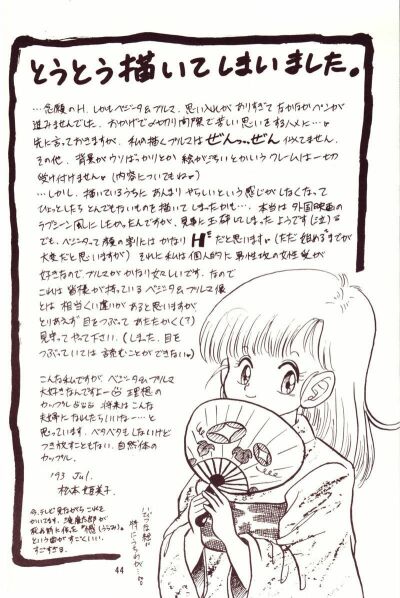 とうとう描いてしまいました。
…念願のH、しかもベジータ&ブルマ、思い入れがありすぎてなかなかペンが
進みませんでした、おかげでメ切り間際で苦しい思いをするハメに…。
先に言っておきますが、私の描くブルマはぜんっっぜん似てません、
その他、背景がウソばっかりとか絵が汚いとかいうクレームは一切
受け付けません。(内容についてもね)
…しかし、描いているうちにあんまりやらしいという感じがしなくなって
ひょっとしたらとんでもないものを描いてしまったかも…、本当は外国映画の
ラブシーン風にしたかったんですが、見事に玉砕してしまったようです(泣)
でも、ベジータって顔の割りにはかなりHだと思います。(ただ始めるまでが
大変だと思いますが) それに私は個人的に男性攻の女性受が
好きなのでブルマがかなり女々しいです、なので
これは皆様が持っているベジータ&ブルマ像
とは相当くい違いがあると思いますが
とりあえず目をつぶってあたたかく(?)
見守ってやって下さい、(しまった、目を
つぶっていては読むことができない。)
こんな私ですが、ベジータ&ブルマ
大好きなんですよー 理想の
カップル 将来はこんな
夫婦になれたらいいなーと
思っています、ベタベタもしないけど
つき放すこともない、自然体の
カップル、
'93 Jul.
松本
今、テレビ見ながらこれを
かいてます、
という曲がすごくいい、
すごすぎる、
いびつな絵が
特にうちわが…。
44